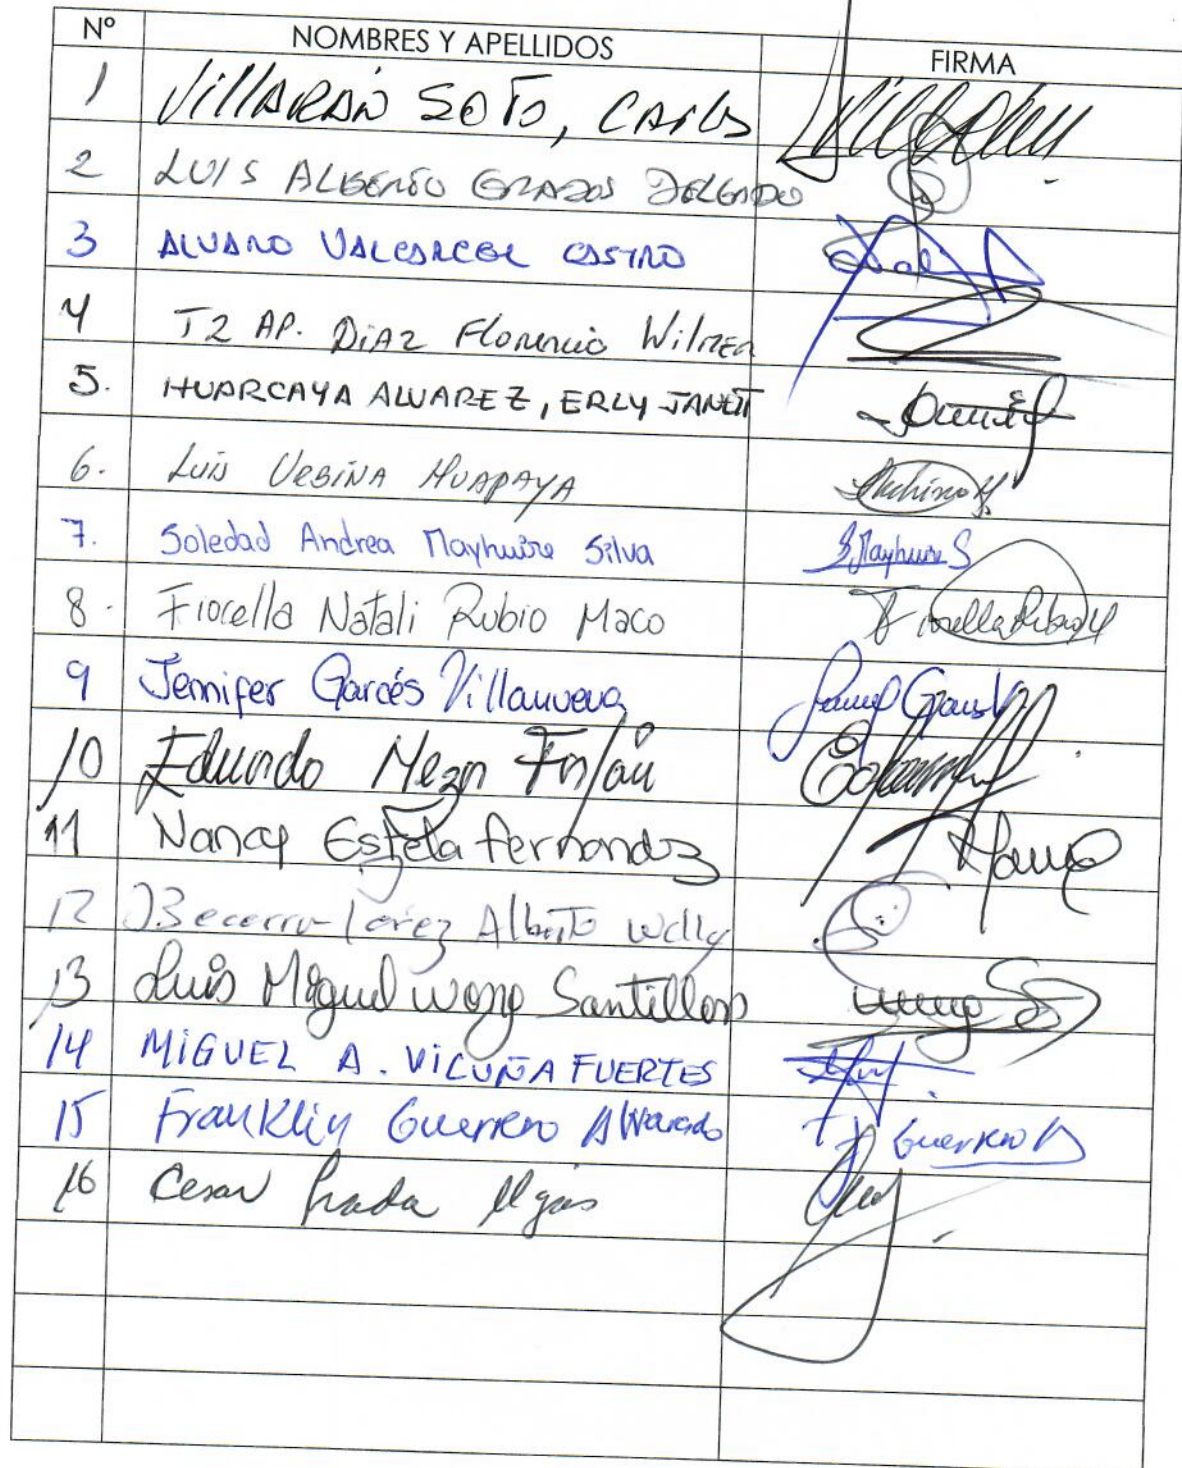 Nº NOMBRES Y APELLIDOS FIRMA
1 VillARÁN SOTO, CARlos
2 LUIS ALBERTO GRADOS DELGADO
3 ALVARO VALCARCEL CASTRO
4 T2 AP. DiAZ Florencio Wilmer
5. HUARCAYA ALVAREZ, ERLY JANET
6. Luis URBINA HUAPAYA
7. Soledad Andrea Mayhuire Silva S.Mayhuire S
8. Fiorella Natali Rubio Maco
9 Jennifer Garcés Villanueva
10 Eduardo Meza
11 Nancy Estela fernandez
12 Becerra Alberto Willy
13 Luis Miguel Wong Santillan
14 MiGUEL A. ViCUÑA FUERTES
15 Franklin Guerrero Alvarado Guerrero A
16 Cesar Prada